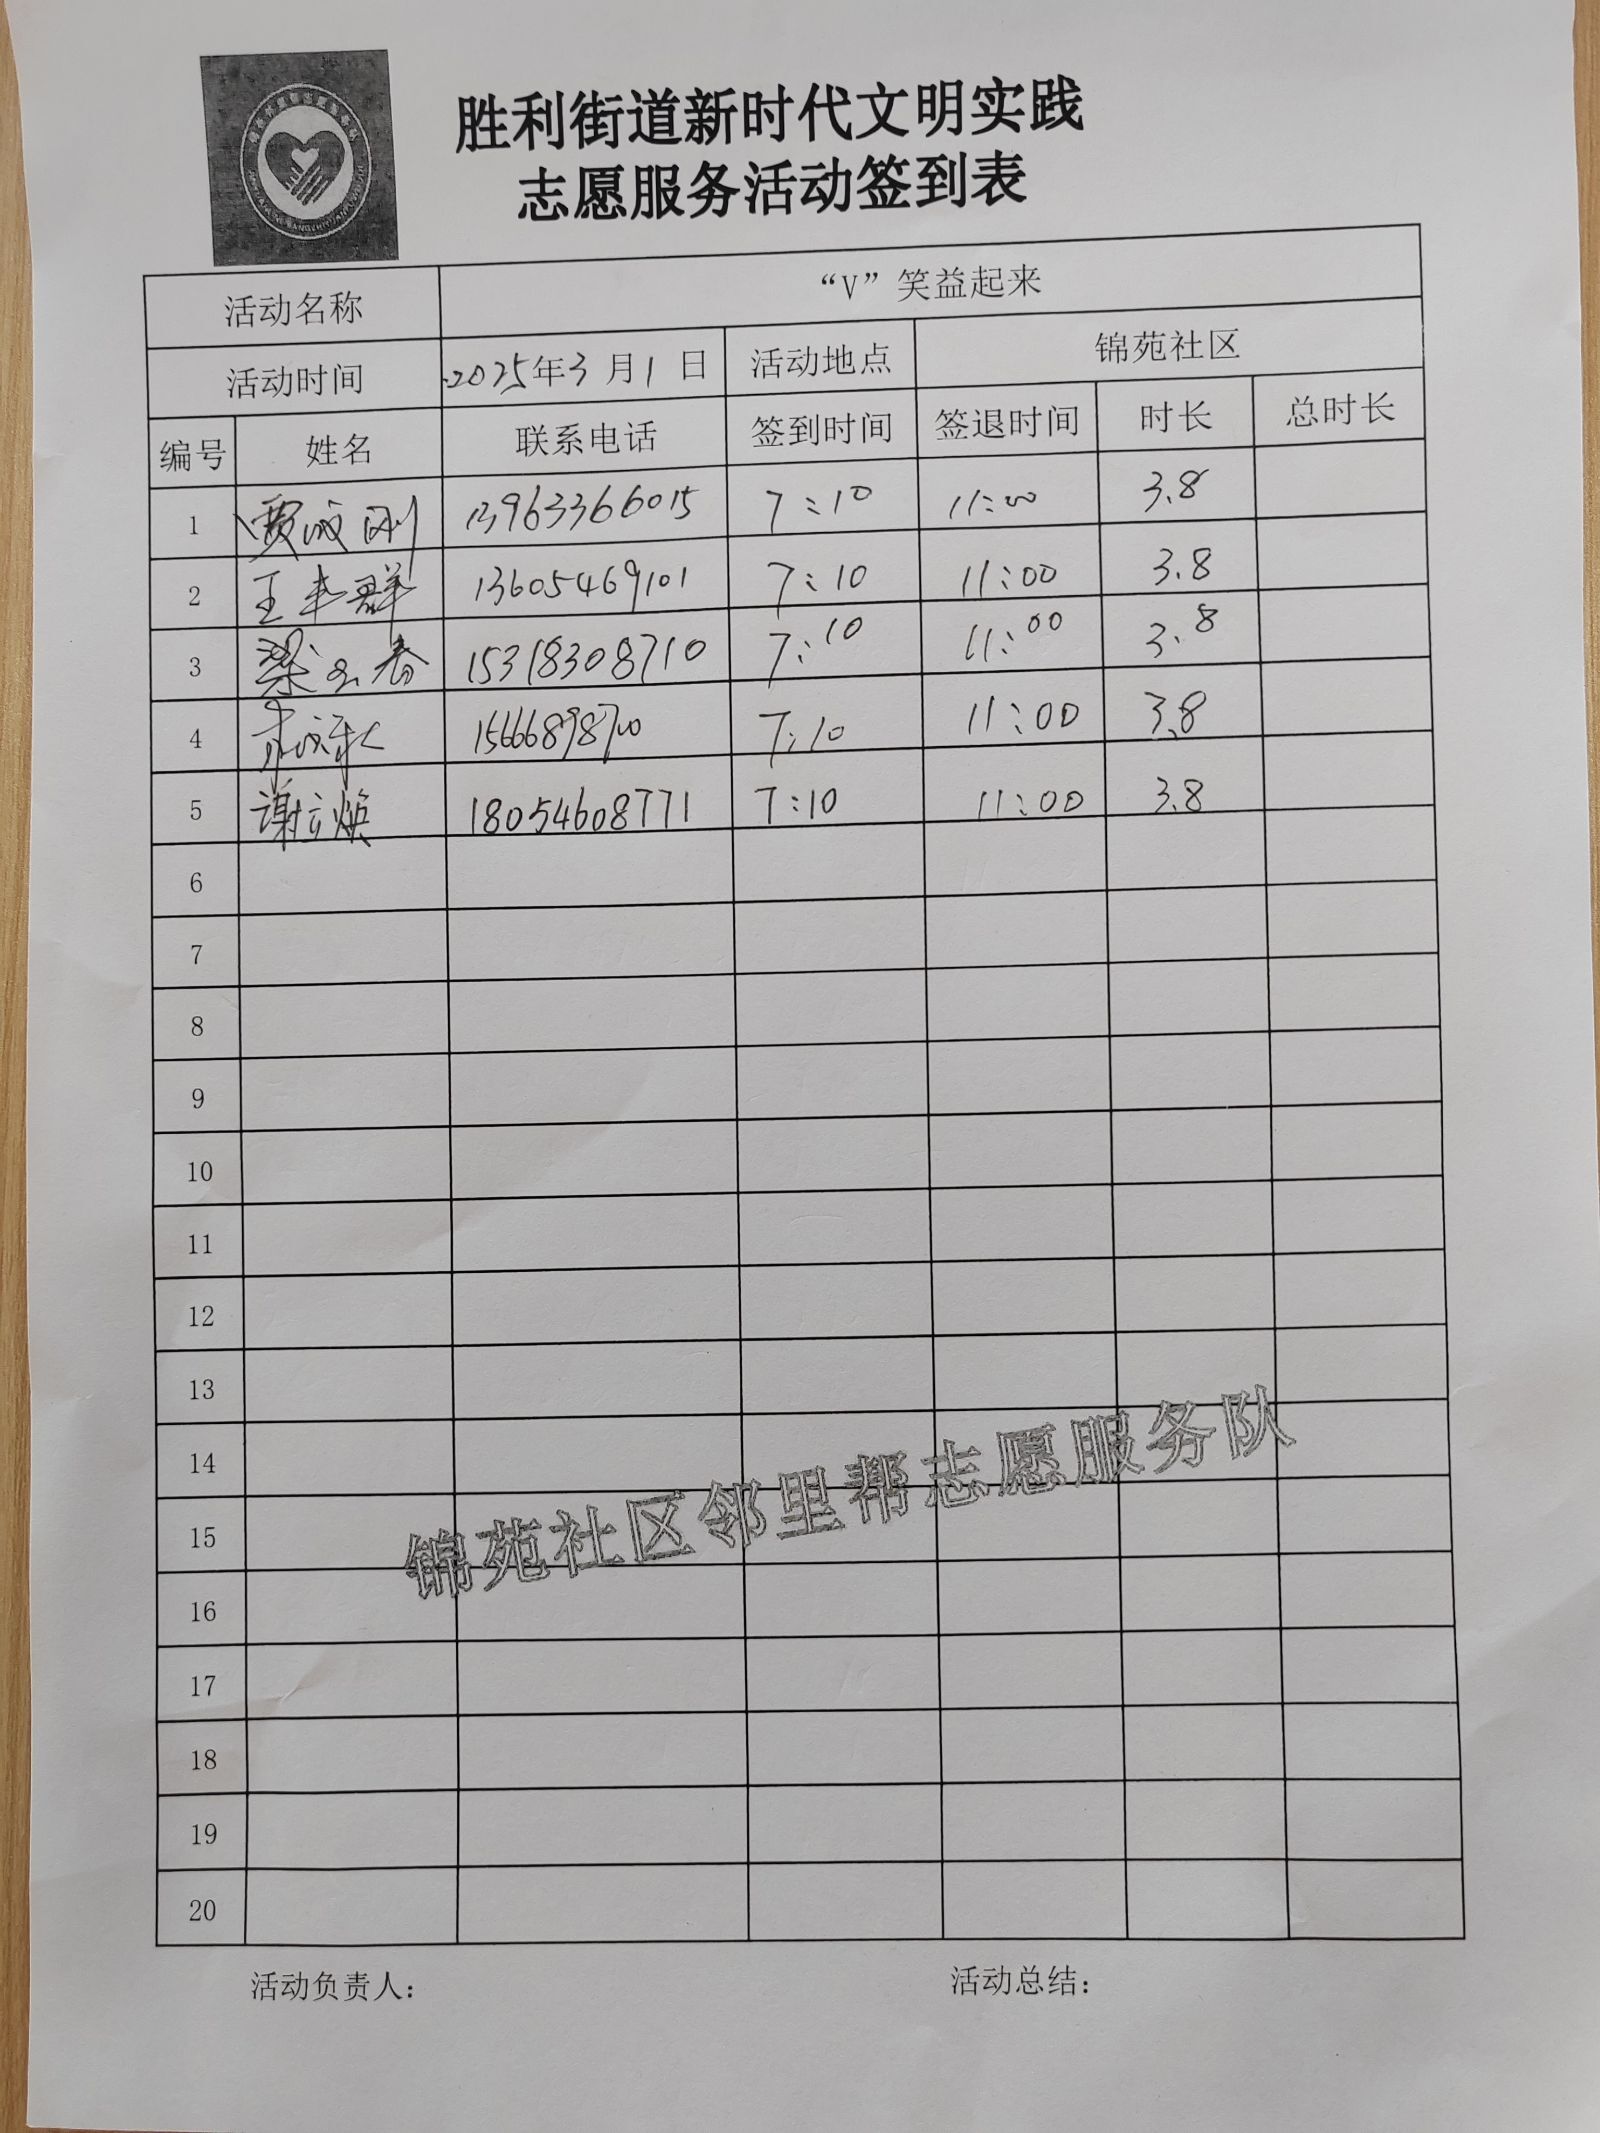 胜利街道新时代文明实践
志愿服务活动签到表
活动名称 “V”笑益起来
活动时间 2025年3月1日 活动地点 锦苑社区
编号 姓名 联系电话 签到时间 签退时间 时长 总时长
1 贾 刚 13963366015 7:10 11:00 3.8
2 王丰群 13605469101 7:10 11:00 3.8
3 梁 春 15318308710 7:10 11:00 3.8
4 15666898700 7:10 11:00 3.8
5 谢立焕 18054608771 7:10 11:00 3.8
6
7
8
9
10
11
12
13
14
15
锦苑社区邻里帮志愿服务队
16
17
18
19
20
活动负责人： 活动总结：